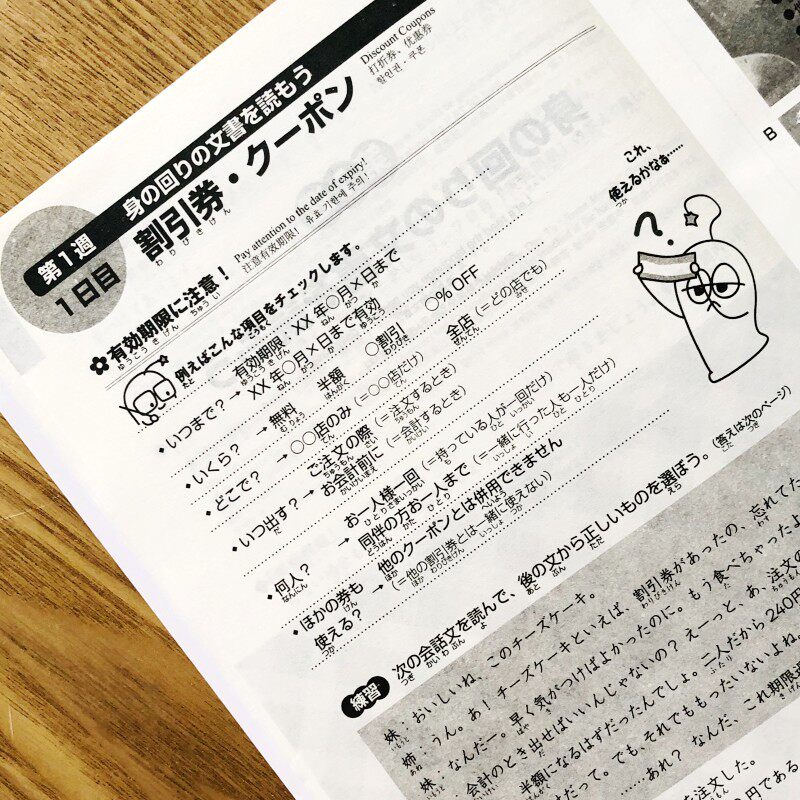 第1週 身の回りの文書を読もう
1日目 割引券・クーポン
わりびきけん
Discount Coupons
打折券、优惠券
할인권・쿠폰
有効期限に注意！
ゆうこうきげん ちゅうい
Pay attention to the date of expiry!
注意有效期限! 유효 기한에 주의!
これ、
使えるかなぁ……
つか
?
B
例えばこんな項目をチェックします。
・いつまで？→有効期限・XX年〇月×日まで
XX年〇月×日まで有効
・いくら？→無料 半額 〇割引 〇％OFF
・どこで？→〇〇店のみ(=〇〇店だけ) 全店(=どの店でも)
・いつ出す？→ご注文の際(=注文するとき)
お会計前に(=会計するとき)
・何人？→お一人様一回(=持っている人が一回だけ)
同伴の方お一人まで(=一緒に行った人も一人だけ)
・ほかの券も使える？→他のクーポンとは併用できません
(=他の割引券とは一緒に使えない)
練習 次の会話文を読んで、後の文から正しいものを選ぼう。(答えは次のページ)
妹：おいしいね、このチーズケーキ。
姉：うん。あ！チーズケーキといえば、割引券があったの、忘れてた
妹：なんだー。早く気がつけばよかったのに。もう食べちゃったよ
会計のとき出せばいいんじゃないの？えーっと、あ、注文の
半額になるはずだったんでしょ。二人だから240円
だって。でも、それでももったいないよね
……あれ？なんだ、これ期限
を注文した。
円である